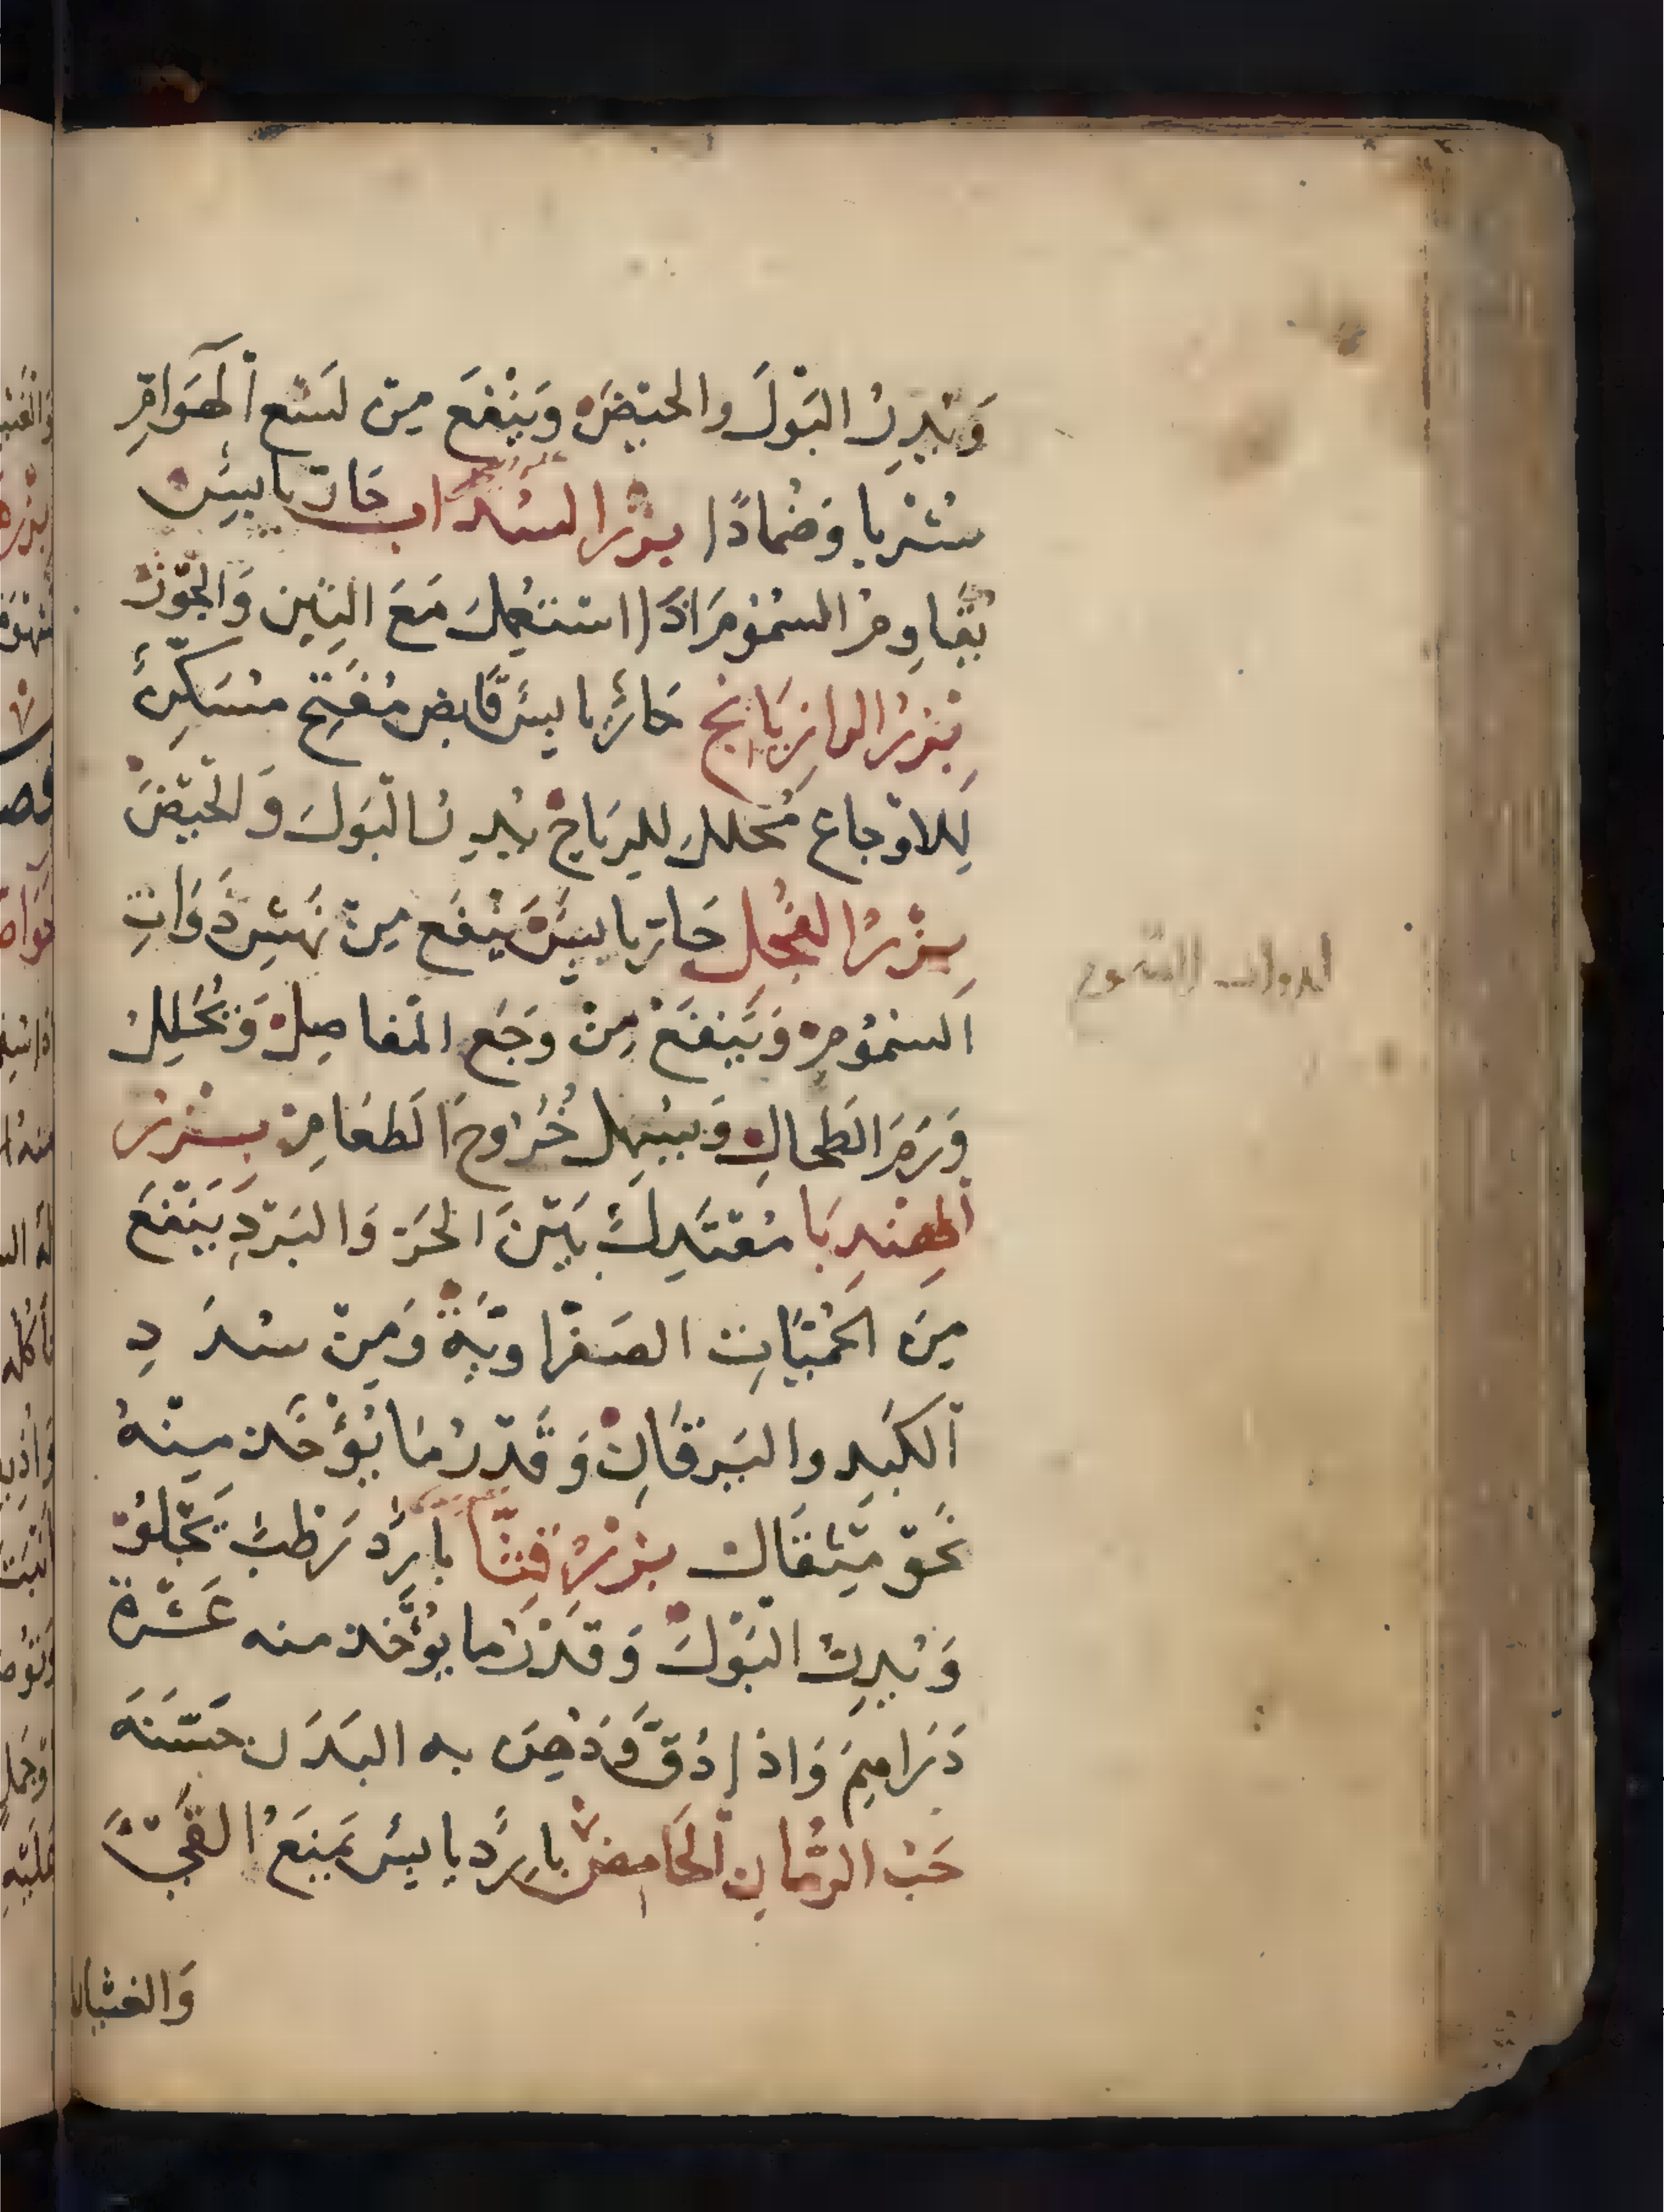 وَيُدِرُّ البَوْلَ والحَيْضَ وَيَنْفَع مِنْ لَسْع ٱلْهَوَامِّ
شُرْبا وَضُمادًا بزْرالسُدَاب حَارّ يابِسٌ
يُقاوِم السُمُومَ اذَا استُعْمِلَ مَعَ التِين وَالجَوْز
بَزْرُ الرازِيَانَج حَارٌّ يابِسٌ قَابِض مُفَتِّح مُسَكِّنٌ
لِلاوْجاع مُحَلِّل للرِيَاح يُدِرُّ البَوْلَ وَالحَيْضَ
بِزْرُ الفُجْلِ حَارّ يابِسٌ يَنْفَع مِنْ نَهْشِ ذَوَاتِ
السُمُومِ وَيَنفَعْ مِنْ وَجَع المَفاصِلِ وَيُحَلِّلُ
وَرَمَ الطَحالِ وَيُسَهِّل خُرُوجَ الطعَامِ بِزْرُ
ٱلهِنْدِبَا مُعْتَدِلٌ بَيْنَ الحَرّ وَالبَرْدِ يَنْفَعَ
مِنَ الحُمّيَاتِ الصَفْراوِيَّةِ وَمِنْ سُدَدِ
ٱلكَبِدِ واليَرقَانِ وَقَدْرُ مَا يُؤْخَذ مِنْهُ
نَحْوَ مِثْقَال بزْرُ قِثّا بارِدٌ رَطْبٌ يَجْلُو
وَيُدِرُّ البَوْلَ وَقَدْرُ ما يُؤْخَذ منه عَشَرَة
دَرَاهِمَ وَاذا دُقَّ وَدُهِنَ به البَدَن حَسَّنَهُ
حَبُّ الرُمّانِ ٱلحَامِضْ بارِدٌ يابِسٌ يَمْنَعُ القَيْءَ
وَالغثيان
لدوات السموم